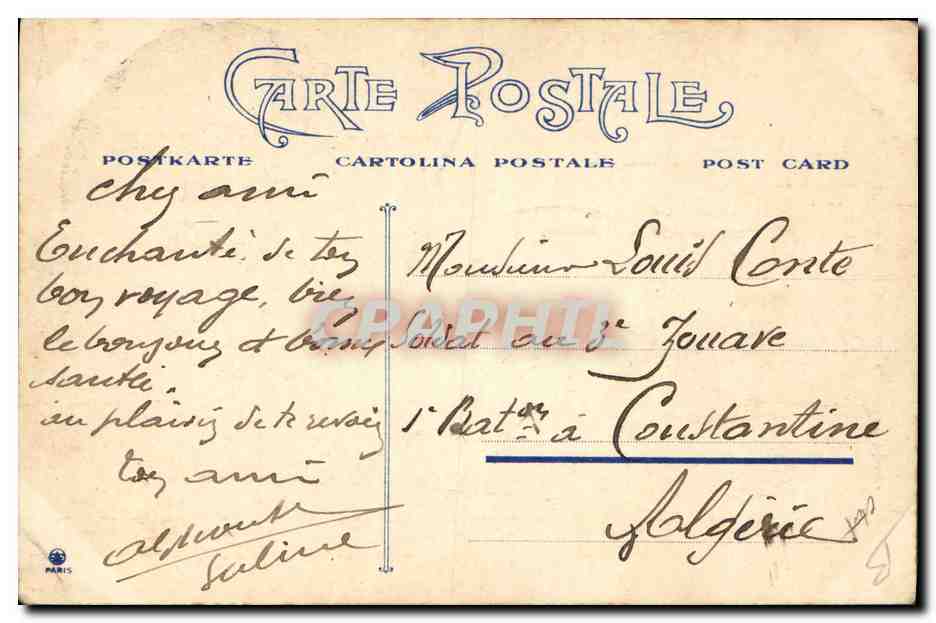 CARTE POSTALE
POSTKARTE CARTOLINA POSTALE POST CARD
cher ami
Enchanté de ton
bon voyage, bien
le bonjour et bonne
santé.
au plaisir de te revoir
ton ami
Alphonse
Monsieur Louis Conte
Soldat au 3e Zouave
1e Baton à Constantine
Algérie
PARIS
CPAPHIL